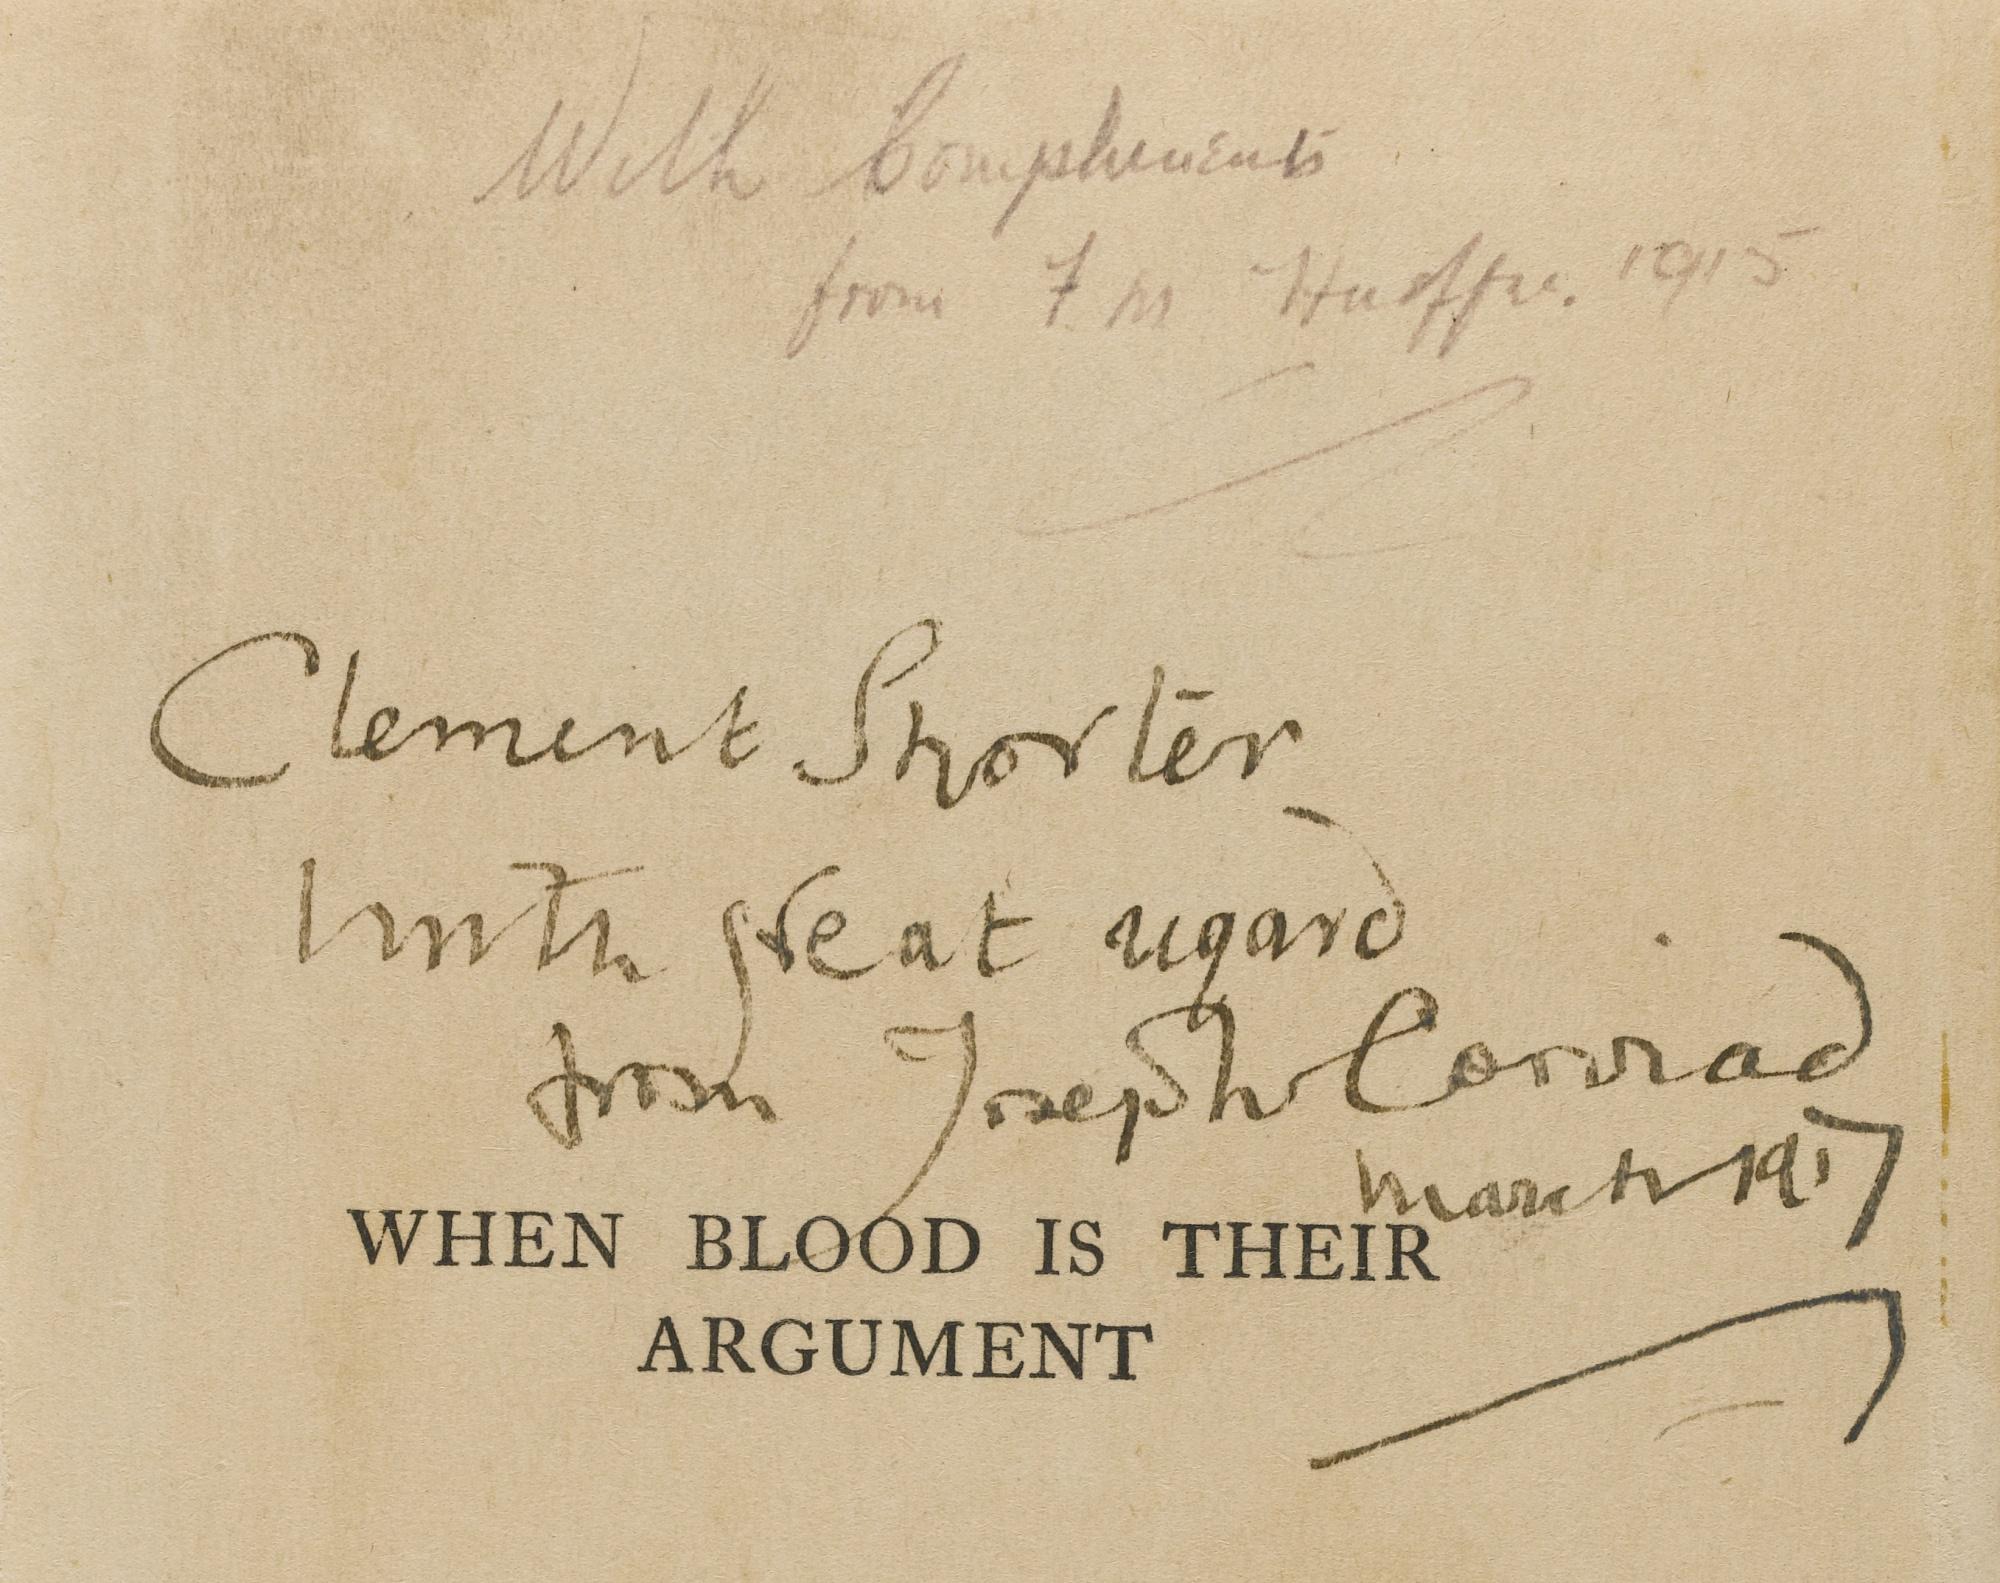 With Compliments
from F M Hueffer. 1915
Clement Shorter
with great regard
from Joseph Conrad
March 1917
WHEN BLOOD IS THEIR
ARGUMENT